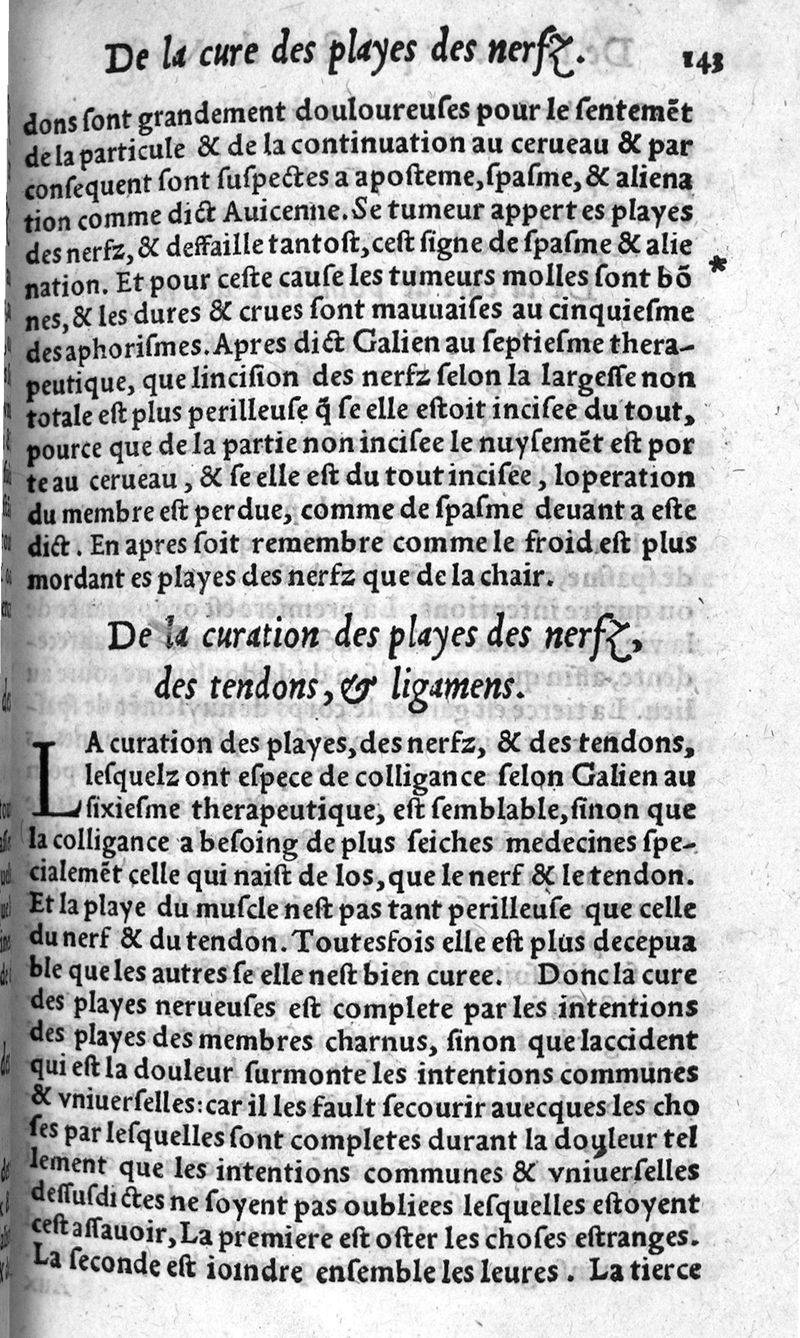 De la cure des playes des nerfz. 143
dons ſont grandement douloureuſes pour le ſentemēt
de la particule & de la continuation au cerueau & par
conſequent ſont ſuſpectes a apoſteme, ſpaſme, & aliena
tion comme dict Auicenne. Se tumeur appert es playes
des nerfz, & deffaille tantoſt, ceſt ſigne de ſpaſme & alie
nation. Et pour ceſte cauſe les tumeurs molles ſont bō *
nes, & les dures & crues ſont mauuaiſes au cinquieſme
des aphoriſmes. Apres dict Galien au ſeptieſme thera-
peutique, que linciſion des nerfz ſelon la largeſſe non
totale eſt plus perilleuſe q̃ ſe elle eſtoit inciſee du tout,
pource que de la partie non inciſee le nuyſemēt eſt por
te au cerueau, & ſe elle eſt du tout inciſee, loperation
du membre eſt perdue, comme de ſpaſme deuant a eſte
dict. En apres ſoit remembre comme le froid eſt plus
mordant es playes des nerfz que de la chair.
De la curation des playes des nerfz,
des tendons, & ligamens.
LA curation des playes, des nerfz, & des tendons,
leſquelz ont eſpece de colligance ſelon Galien au
ſixieſme therapeutique, eſt ſemblable, ſinon que
la colligance a beſoing de plus ſeiches medecines ſpe-
cialemēt celle qui naiſt de los, que le nerf & le tendon.
Et la playe du muſcle neſt pas tant perilleuſe que celle
du nerf & du tendon. Toutesfois elle eſt plus decepua
ble que les autres ſe elle neſt bien curee. Donc la cure
des playes nerueuſes eſt complete par les intentions
des playes des membres charnus, ſinon que laccident
qui eſt la douleur ſurmonte les intentions communes
& vniuerſelles: car il les fault ſecourir auecques les cho
ſes par leſquelles ſont completes durant la douleur tel
lement que les intentions communes & vniuerſelles
deſſuſdictes ne ſoyent pas oubliees leſquelles eſtoyent
ceſt aſſauoir, La premiere eſt oſter les choſes eſtranges.
La ſeconde eſt ioindre enſemble les leures. La tierce